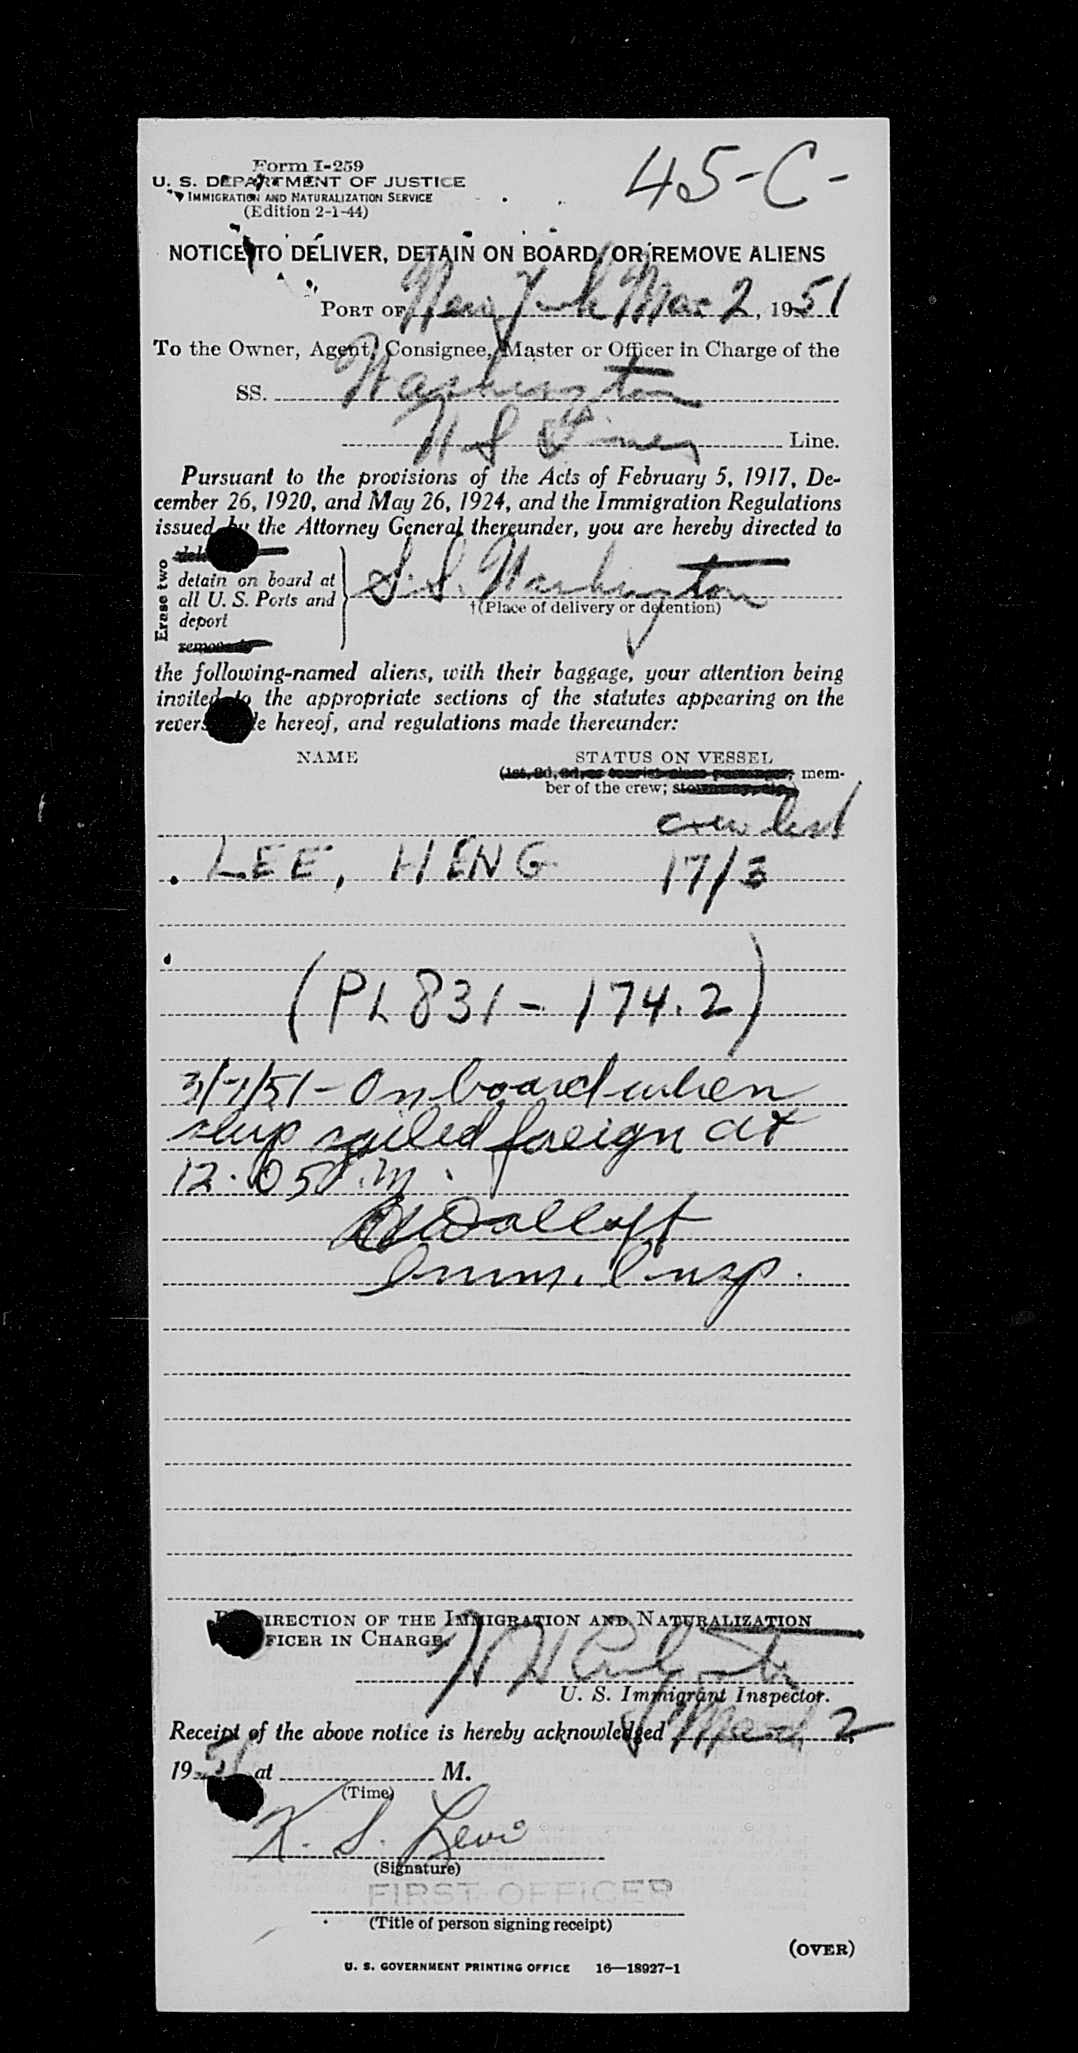 Form I-259
45-C-
U. S. DEPARTMENT OF JUSTICE
IMMIGRATION AND NATURALIZATION SERVICE
(Edition 2-1-44)
NOTICE TO DELIVER, DETAIN ON BOARD, OR REMOVE ALIENS
PORT OF New York Mar 2, 1951
To the Owner, Agent, Consignee, Master or Officer in Charge of the
SS. Washington
U S Lines Line.
Pursuant to the provisions of the Acts of February 5, 1917, De-
cember 26, 1920, and May 26, 1924, and the Immigration Regulations
issued by the Attorney General thereunder, you are hereby directed to
Erase two
detain on board at
all U. S. Ports and
deport
S.S. Washington
†(Place of delivery or detention)
the following-named aliens, with their baggage, your attention being
invited to the appropriate sections of the statutes appearing on the
reverse hereof, and regulations made thereunder:
NAME STATUS ON VESSEL
(1st, 2d, 3d, or tourist class passenger; mem-
ber of the crew;
crew list
LEE, HENG 17/3
(PL831-174.2)
3/ /51 - On board when
ship sailed foreign at
12.05 P.m.
Imm. Insp.
DIRECTION OF THE IMMIGRATION AND NATURALIZATION
OFFICER IN CHARGE.
U. S. Immigrant Inspector.
Receipt of the above notice is hereby acknowledged March 2
1951 at M.
(Time)
K. S. Levi
(Signature)
FIRST OFFICER
(Title of person signing receipt)
(OVER)
U. S. GOVERNMENT PRINTING OFFICE 16—18927-1